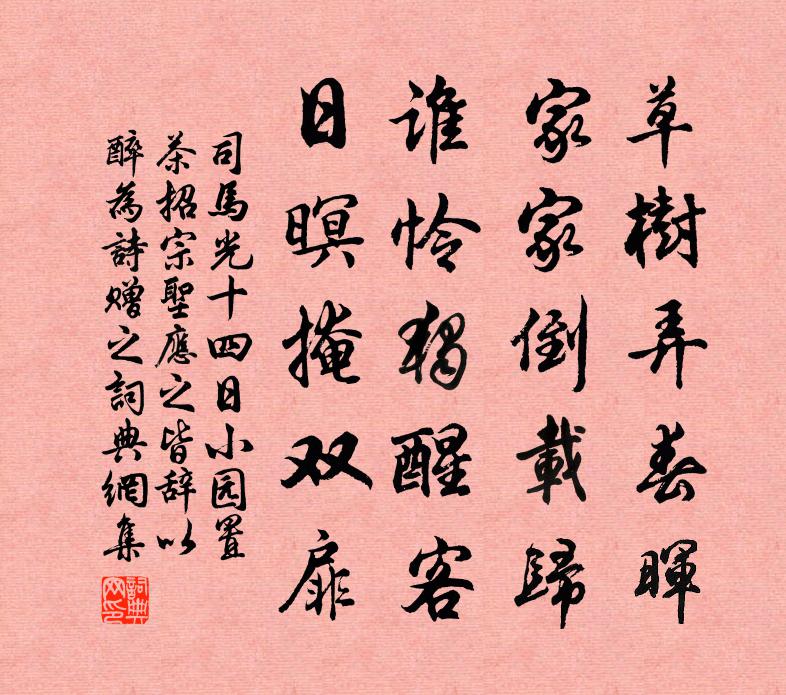 草樹弄春暉
家家倒載歸
谁怜獨醒客
日暝掩双扉
司馬光十四日小园置
茶招宗聖應之皆辞以
醉為詩贈之詞典網集
詞典
网印